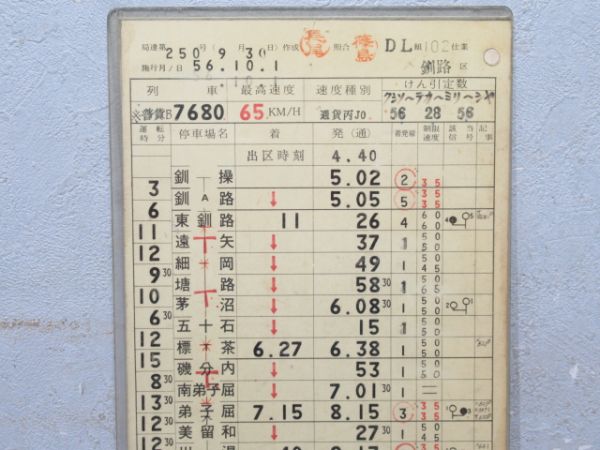 局達第250号(9月30日)作成 長尾 照合 篠島 DL組102仕業
施行月/日 56.10.1 釧路区
56.10.1
列車 最高速度 速度種別 けん引定数
※普貨B7680 65KM/H 通貨丙J0 クシソ〜テカ〜ミリ〜シヤ
56 28 56
運転時分 停車場名 着 発(通) 着発線 制限速度 該当信号 記事
出区時刻 4.40
釧操 5.02 2 35 35
3
釧A路 ↓ 5.05 5 35 35
6
東釧路 11 26 4 60 60
11
遠矢 ↓ 37 1 50 50
12
細岡 ↓ 49 1 50 45
9 30
塘路 ↓ 58 30 1 50 65
10
茅沼 ↓ 6.08 30 1 50 50
6 30
五十石 ↓ 15 1 50 50
12
標茶 6.27 6.38 1 50 50
15
磯分内 ↓ 53 1 50 50
8 30
南弟子屈 ↓ 7.01 30 1 =
13 30
弟子屈 7.15 8.15 3 35 35
12 30
美留和 ↓ 27 30 1 50 45
12 30